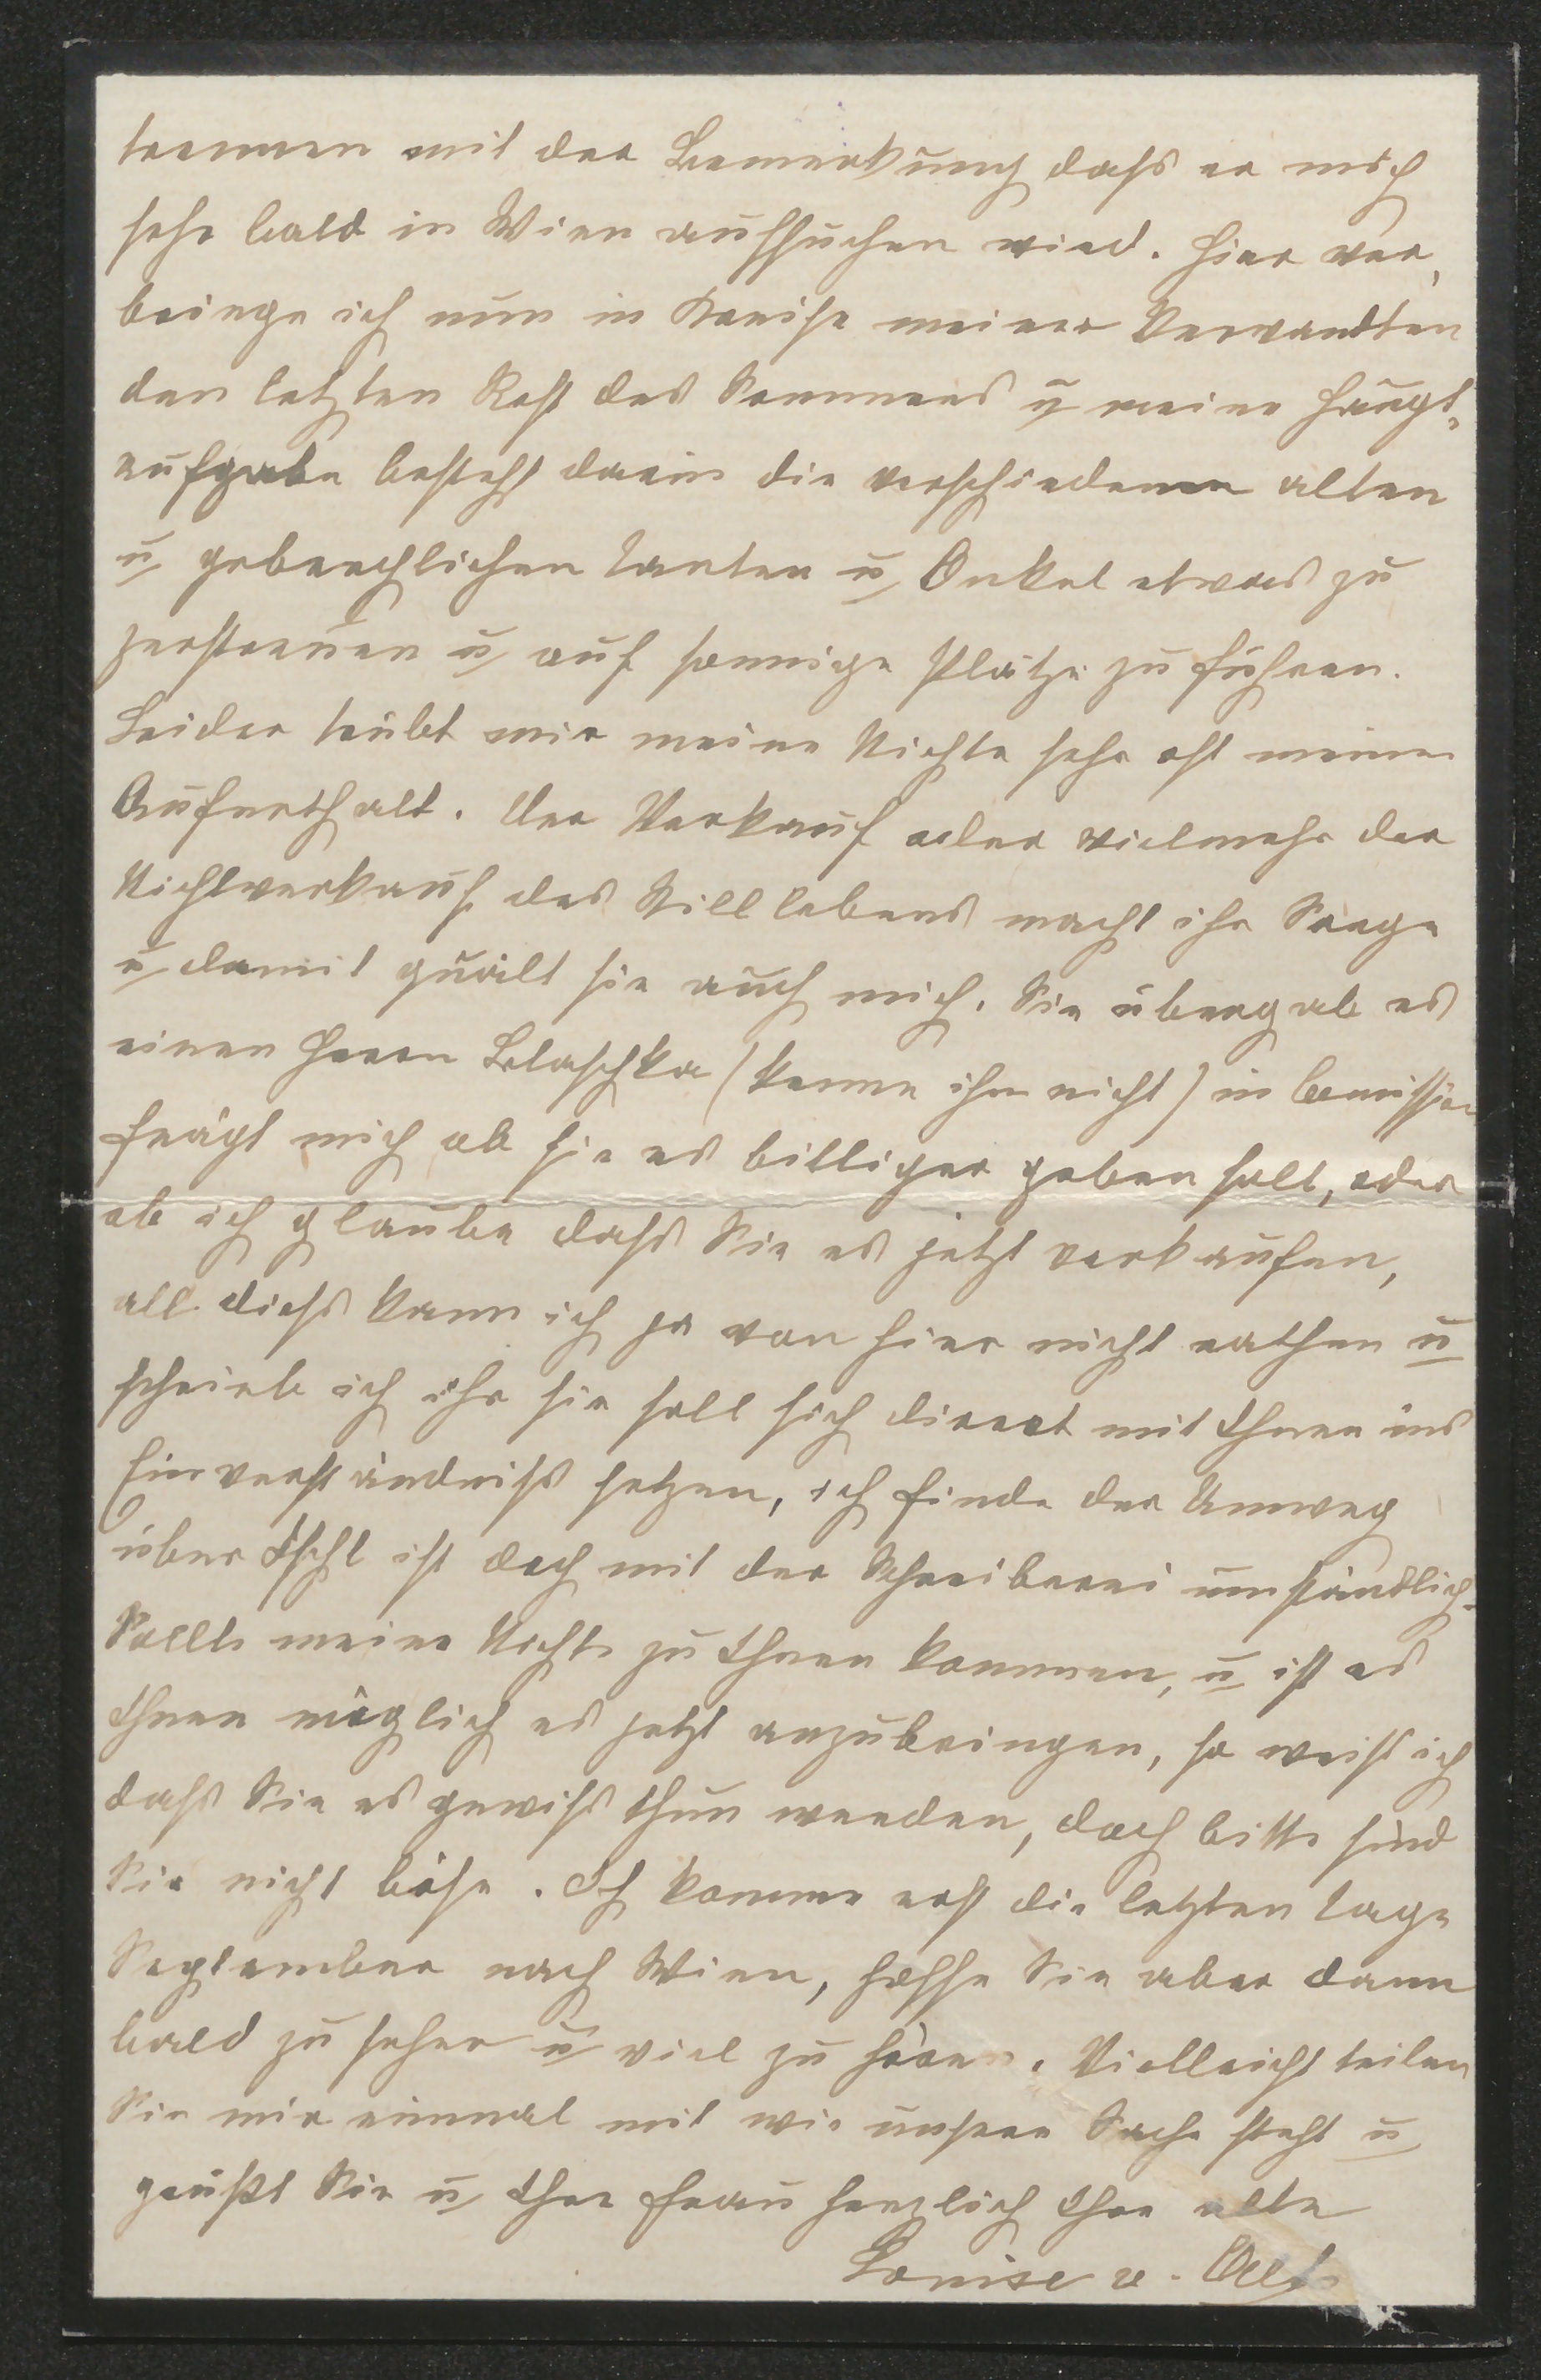 trennen mit der Bemerkung dass er mich
sehr bald in Wien aufsuchen wird. Hier ver„
bringe ich nun im Kreise meiner Verwandten
den letzten Rest des Sommers u meine Haupt„
aufgabe besteht darin die verschiedenen alten
u gebrechlichen Tanten u Onkel etwas zu
zerstreuen u auf sonnige Plätze zu führen.
Leider trübt mir meine Nichte sehr oft meinen
Aufenthalt. Der Verkauf oder vielmehr der
Nichtverkauf des Stilllebens macht ihr Sorge
u damit quält sie auch mich. Sie übergab es
einen Herrn Blaschka (kenne ihn nicht) in Comission
frägt mich ob sie es billiger geben soll, oder
ob ich glaube dass Sie es jetzt verkaufen,
all diess kann ich ja von hier nicht rathen u
schrieb ich ihr sie soll sich direct mit Ihnen ins
Einverständniss setzen, ich finde der Umweg
über Ischl ist doch mit der Schreiberei umständlich.
Sollte meine Nichte zu Ihnen kommen, u ist es
Ihnen möglich es jetzt anzubringen, so weiss ich
dass Sie es gewiss thun werden, doch bitte sind
Sie nicht böse. Ich komme erst die letzten Tage
September nach Wien, hoffe Sie aber dann
bald zu sehen u viel zu hören. Vielleicht teilen
Sie mir einmal mit wie unsere Sache steht u
grüßt Sie u Ihre Frau herzlich Ihre alte
Louise v. Alt